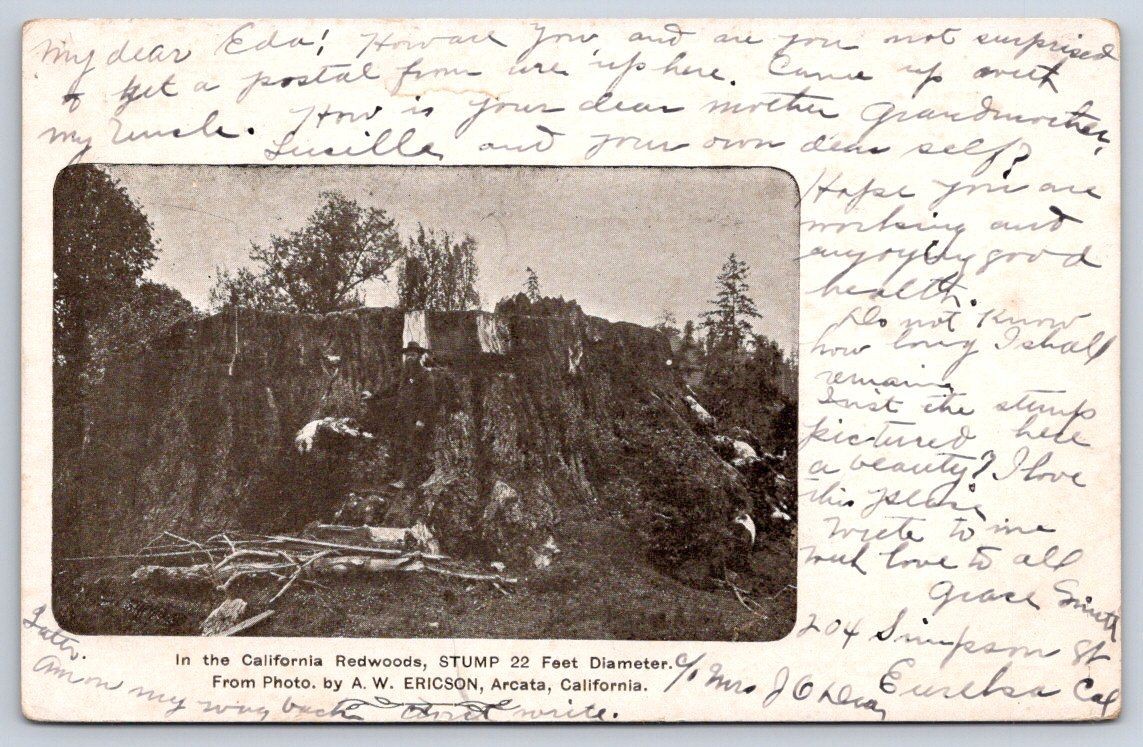 My dear Eda! How are you, and are you not surprised
to get a postal from me up here. Came up with
my Uncle. How is your dear mother Grandmother,
Lucille, and your own dear self?
Hope you are
working and
enjoying good
health.
Do not know
how long I shall
remain.
Isnt the stump
pictured here
a beauty? I love
this place
Write to me
with love to all
Grace Smith
204 Simpson St
Eureka Cal
c/o Mrs J O
In the California Redwoods, STUMP 22 Feet Diameter.
From Photo. by A. W. ERICSON, Arcata, California.
Later.
Am on my way back dont write.